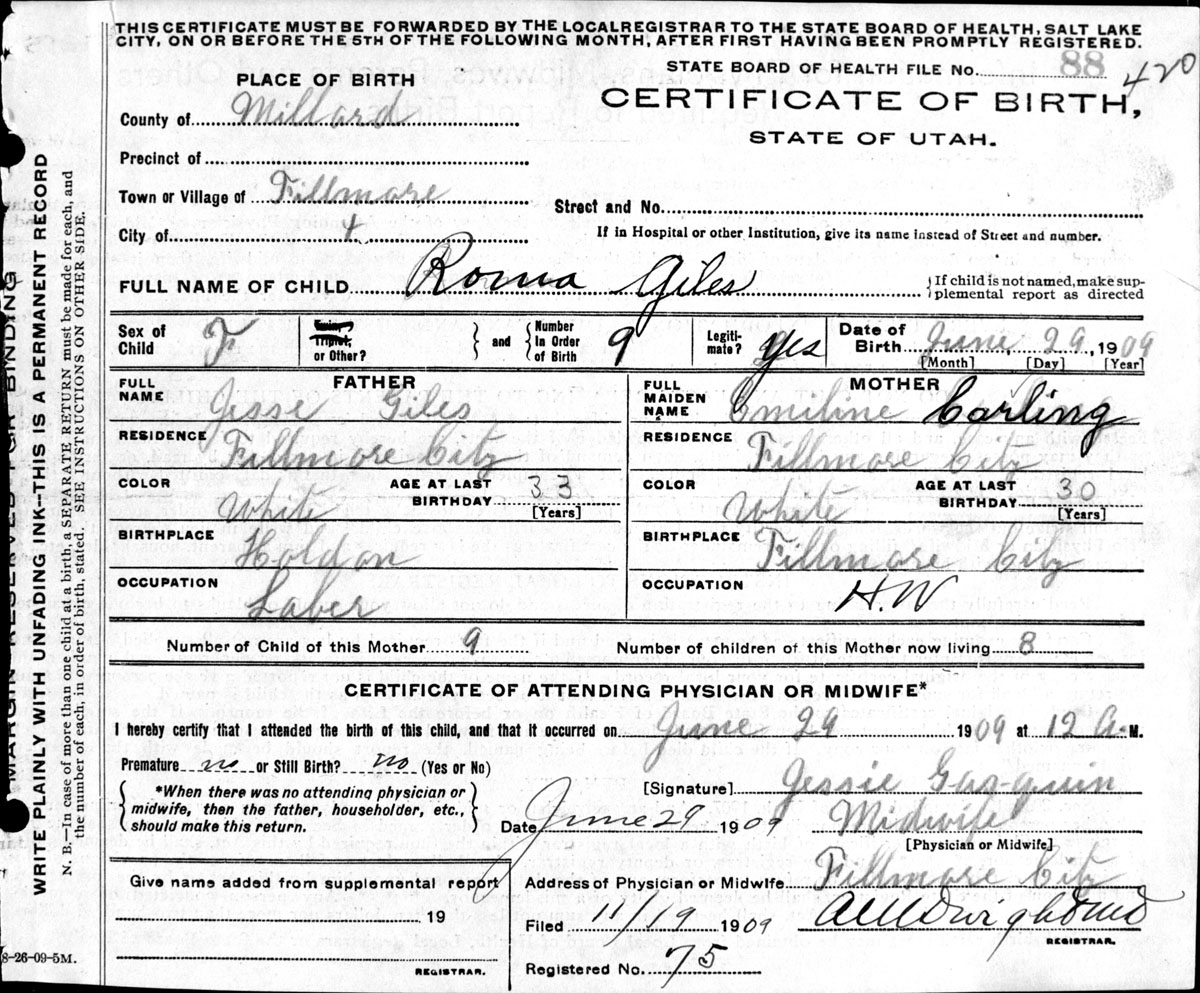 THIS CERTIFICATE MUST BE FORWARDED BY THE LOCAL REGISTRAR TO THE STATE BOARD OF HEALTH, SALT LAKE
CITY, ON OR BEFORE THE 5TH OF THE FOLLOWING MONTH, AFTER FIRST HAVING BEEN PROMPTLY REGISTERED.
STATE BOARD OF HEALTH FILE No. 88 420
PLACE OF BIRTH
CERTIFICATE OF BIRTH,
STATE OF UTAH.
County of Millard
Precinct of
Town or Village of Fillmore
Street and No.
City of 4
If in Hospital or other Institution, give its name instead of Street and number.
FULL NAME OF CHILD Roma Giles
{If child is not named, make sup-
plemental report as directed
Sex of Child F
Twin, Triplet, or Other?
and
Number In Order of Birth 9
Legiti-mate? yes
Date of Birth June 29, 1909
[Month] [Day] [Year]
FATHER
FULL NAME Jesse Giles
RESIDENCE Fillmore City
COLOR White
AGE AT LAST BIRTHDAY 33 [Years]
BIRTHPLACE Holdon
OCCUPATION Laber
MOTHER
FULL MAIDEN NAME Emiline Carling
RESIDENCE Fillmore City
COLOR White
AGE AT LAST BIRTHDAY 30 [Years]
BIRTHPLACE Fillmore City
OCCUPATION H.W
Number of Child of this Mother 9
Number of children of this Mother now living 8
CERTIFICATE OF ATTENDING PHYSICIAN OR MIDWIFE*
I hereby certify that I attended the birth of this child, and that it occurred on June 29 1909 at 12 A. M.
Premature no or Still Birth? no (Yes or No)
*When there was no attending physician or
midwife, then the father, householder, etc.,
should make this return.
[Signature] Jessie Gasquin
Date June 29 1909
Midwife
[Physician or Midwife]
Give name added from supplemental report
19
REGISTRAR.
Address of Physician or Midwife Fillmore City
Filed 11/19 1909
REGISTRAR.
Registered No. 75
8-26-09-5M.
MARGIN RESERVED FOR BINDING
WRITE PLAINLY WITH UNFADING INK--THIS IS A PERMANENT RECORD
N. B.—In case of more than one child at a birth, a SEPARATE RETURN must be made for each, and
the number of each, in order of birth, stated. SEE INSTRUCTIONS ON OTHER SIDE.